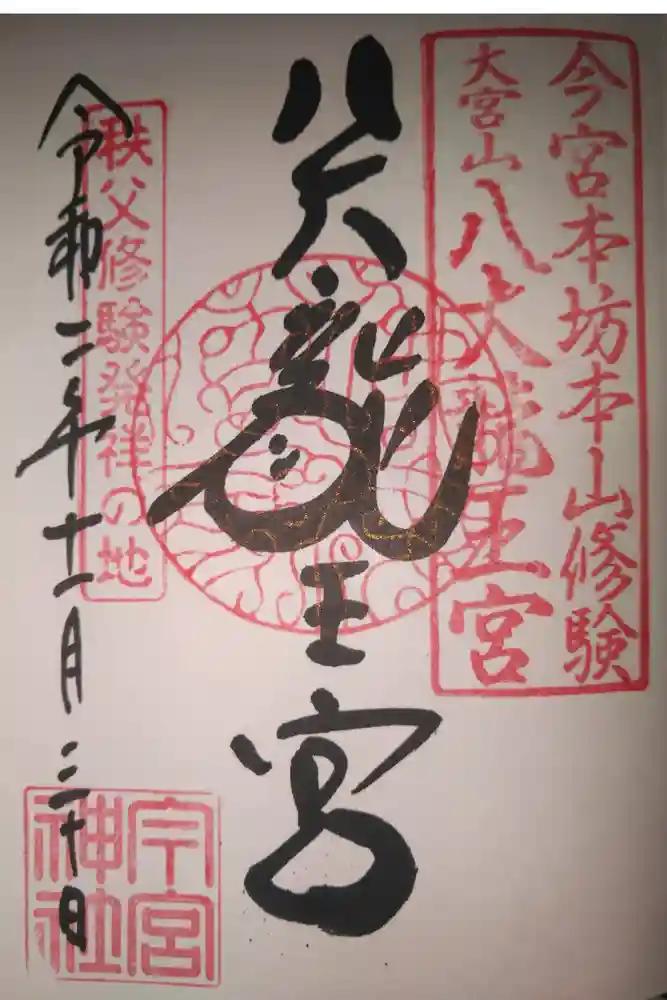 今宮本坊本山修験
大宮山八大龍王宮
八大龍王宮
秩父修験発祥の地
令和二年十一月三十日
今宮神社